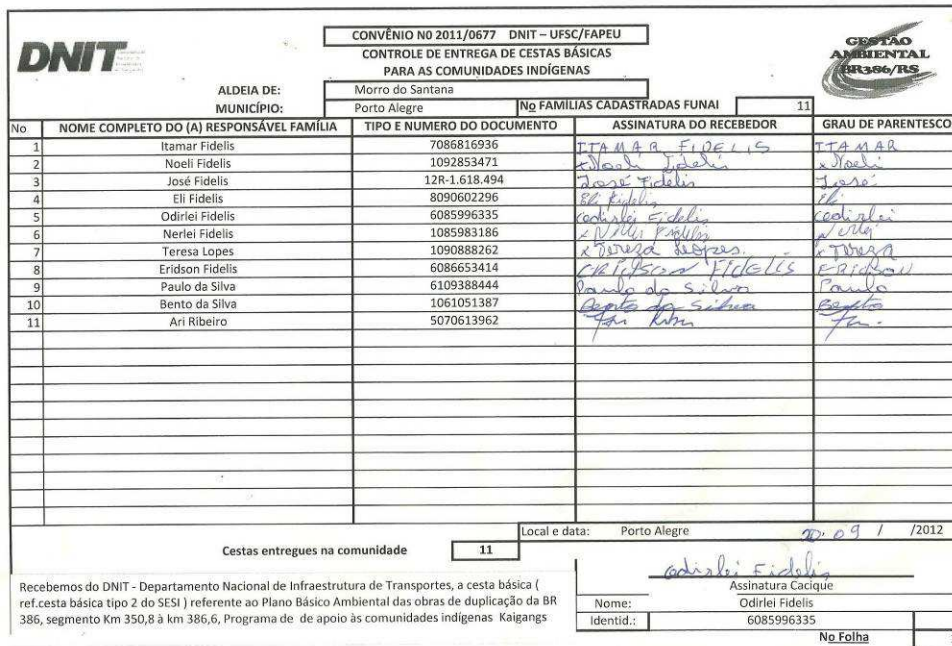 DNIT
CONVÊNIO N0 2011/0677 DNIT – UFSC/FAPEU
CONTROLE DE ENTREGA DE CESTAS BÁSICAS
PARA AS COMUNIDADES INDÍGENAS
GESTÃO
AMBIENTAL
BR386/RS
ALDEIA DE: Morro do Santana
MUNICÍPIO: Porto Alegre No FAMÍLIAS CADASTRADAS FUNAI 11
No NOME COMPLETO DO (A) RESPONSÁVEL FAMÍLIA TIPO E NUMERO DO DOCUMENTO ASSINATURA DO RECEBEDOR GRAU DE PARENTESCO
1 Itamar Fidelis 7086816936 ITAMAR FIDELIS ITAMAR
2 Noeli Fidelis 1092853471 x Noeli Fidelis x Noeli
3 José Fidelis 12R-1.618.494 José Fidelis José
4 Eli Fidelis 8090602296 Eli Fidelis Eli
5 Odirlei Fidelis 6085996335 Fidelis
6 Nerlei Fidelis 1085983186 x Fidelis
7 Teresa Lopes 1090888262 x Tereza Lopes x Tereza
8 Eridson Fidelis 6086653414 ERIDSON FIDELIS ERIDSON
9 Paulo da Silva 6109388444 Paulo da Silva Paulo
10 Bento da Silva 1061051387 Bento da Silva Bento
11 Ari Ribeiro 5070613962
Local e data: Porto Alegre 20.09 / /2012
Cestas entregues na comunidade 11
Fidelis
Assinatura Cacique
Recebemos do DNIT - Departamento Nacional de Infraestrutura de Transportes, a cesta básica (
ref.cesta básica tipo 2 do SESI ) referente ao Plano Básico Ambiental das obras de duplicação da BR
386, segmento Km 350,8 à km 386,6, Programa de de apoio às comunidades indígenas Kaigangs
Nome: Odirlei Fidelis
Identid.: 6085996335
No Folha